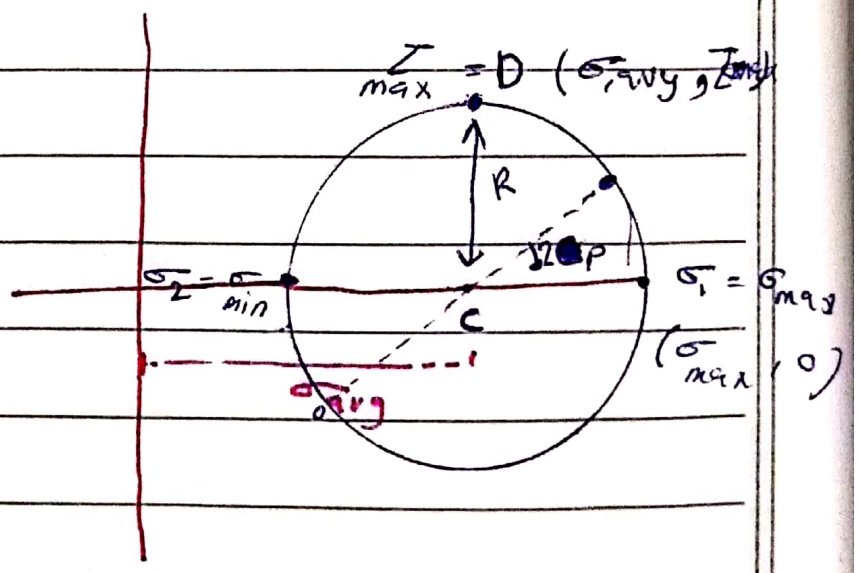 τmax = D (σavg, τmax)
R
2θp
σ2 = σmin
σ1 = σmax
C
(σmax, 0)
σavg